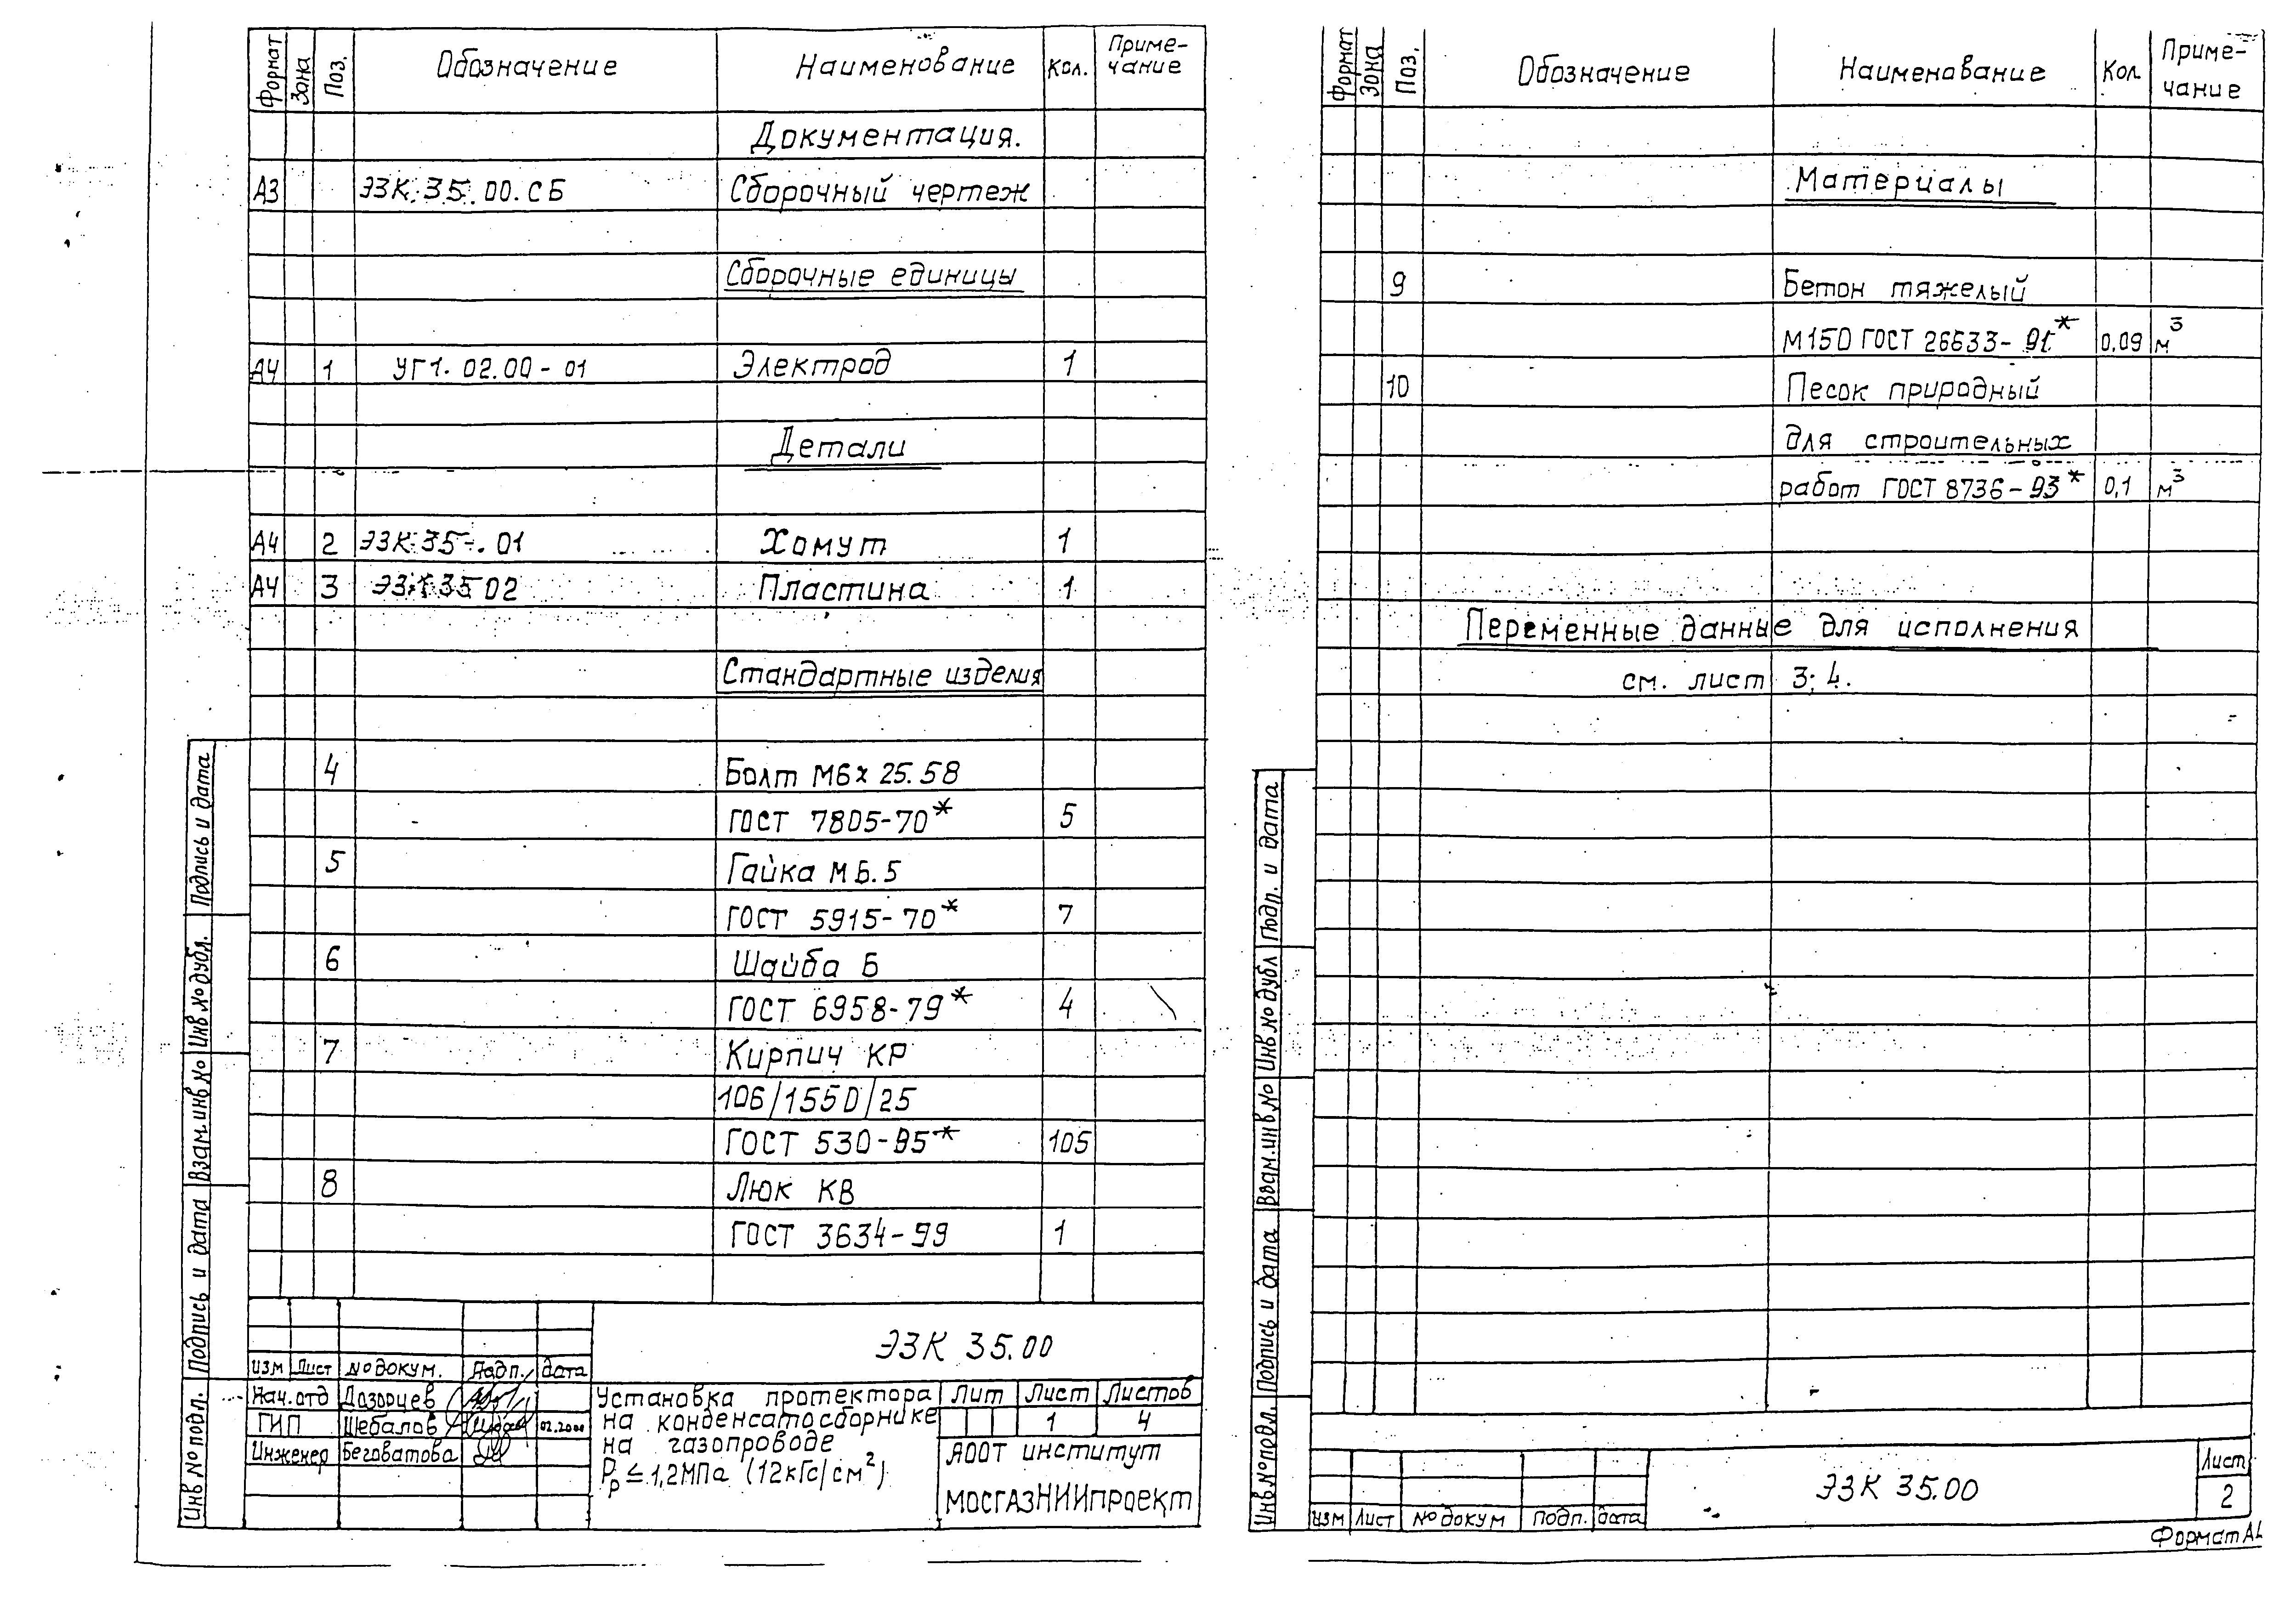 Формат Зона Поз. Обозначение Наименование Кол. Приме-
чание
Документация.
А3 ЭЗК 35.00.СБ Сборочный чертеж
Сборочные единицы
А4 1 УГ1.02.00-01 Электрод 1
Детали
А4 2 ЭЗК 35-.01 Хомут 1
А4 3 35 02 Пластина 1
Стандартные изделия
4 Болт М6х25.58
ГОСТ 7805-70* 5
5 Гайка М6.5
ГОСТ 5915-70* 7
6 Шайба 6
ГОСТ 6958-79* 4
7 Кирпич КР
106/1550/25
ГОСТ 530-95* 105
8 Люк КВ
ГОСТ 3634-99 1
Подпись и дата
Инв № дубл.
Взам. инв №
Подпись и дата
Инв № подл.
ЭЗК 35.00
Изм Лист № докум. Подп. Дата
Нач. отд Дозорцев
ГИП Шебалов 02.2000
Инженер Беговатова
Установка протектора
на конденсатосборнике
на газопроводе
Рр ≤ 1,2МПа (12кГс/см²)
Лит Лист Листов
1 4
АООТ институт
МОСГАЗНИИпроект
Формат Зона Поз. Обозначение Наименование Кол Приме-
чание
Материалы
9 Бетон тяжелый
М150 ГОСТ 26633-91* 0,09 м³
10 Песок природный
для строительных
работ ГОСТ 8736-93* 0,1 м³
Переменные данные для исполнения
см. лист 3; 4.
Подп. и дата
Инв № дубл
Взам. инв №
Подпись и дата
Инв № подл.
Изм Лист № докум Подп. Дата
ЭЗК 35.00
Лист
2
Формат А4